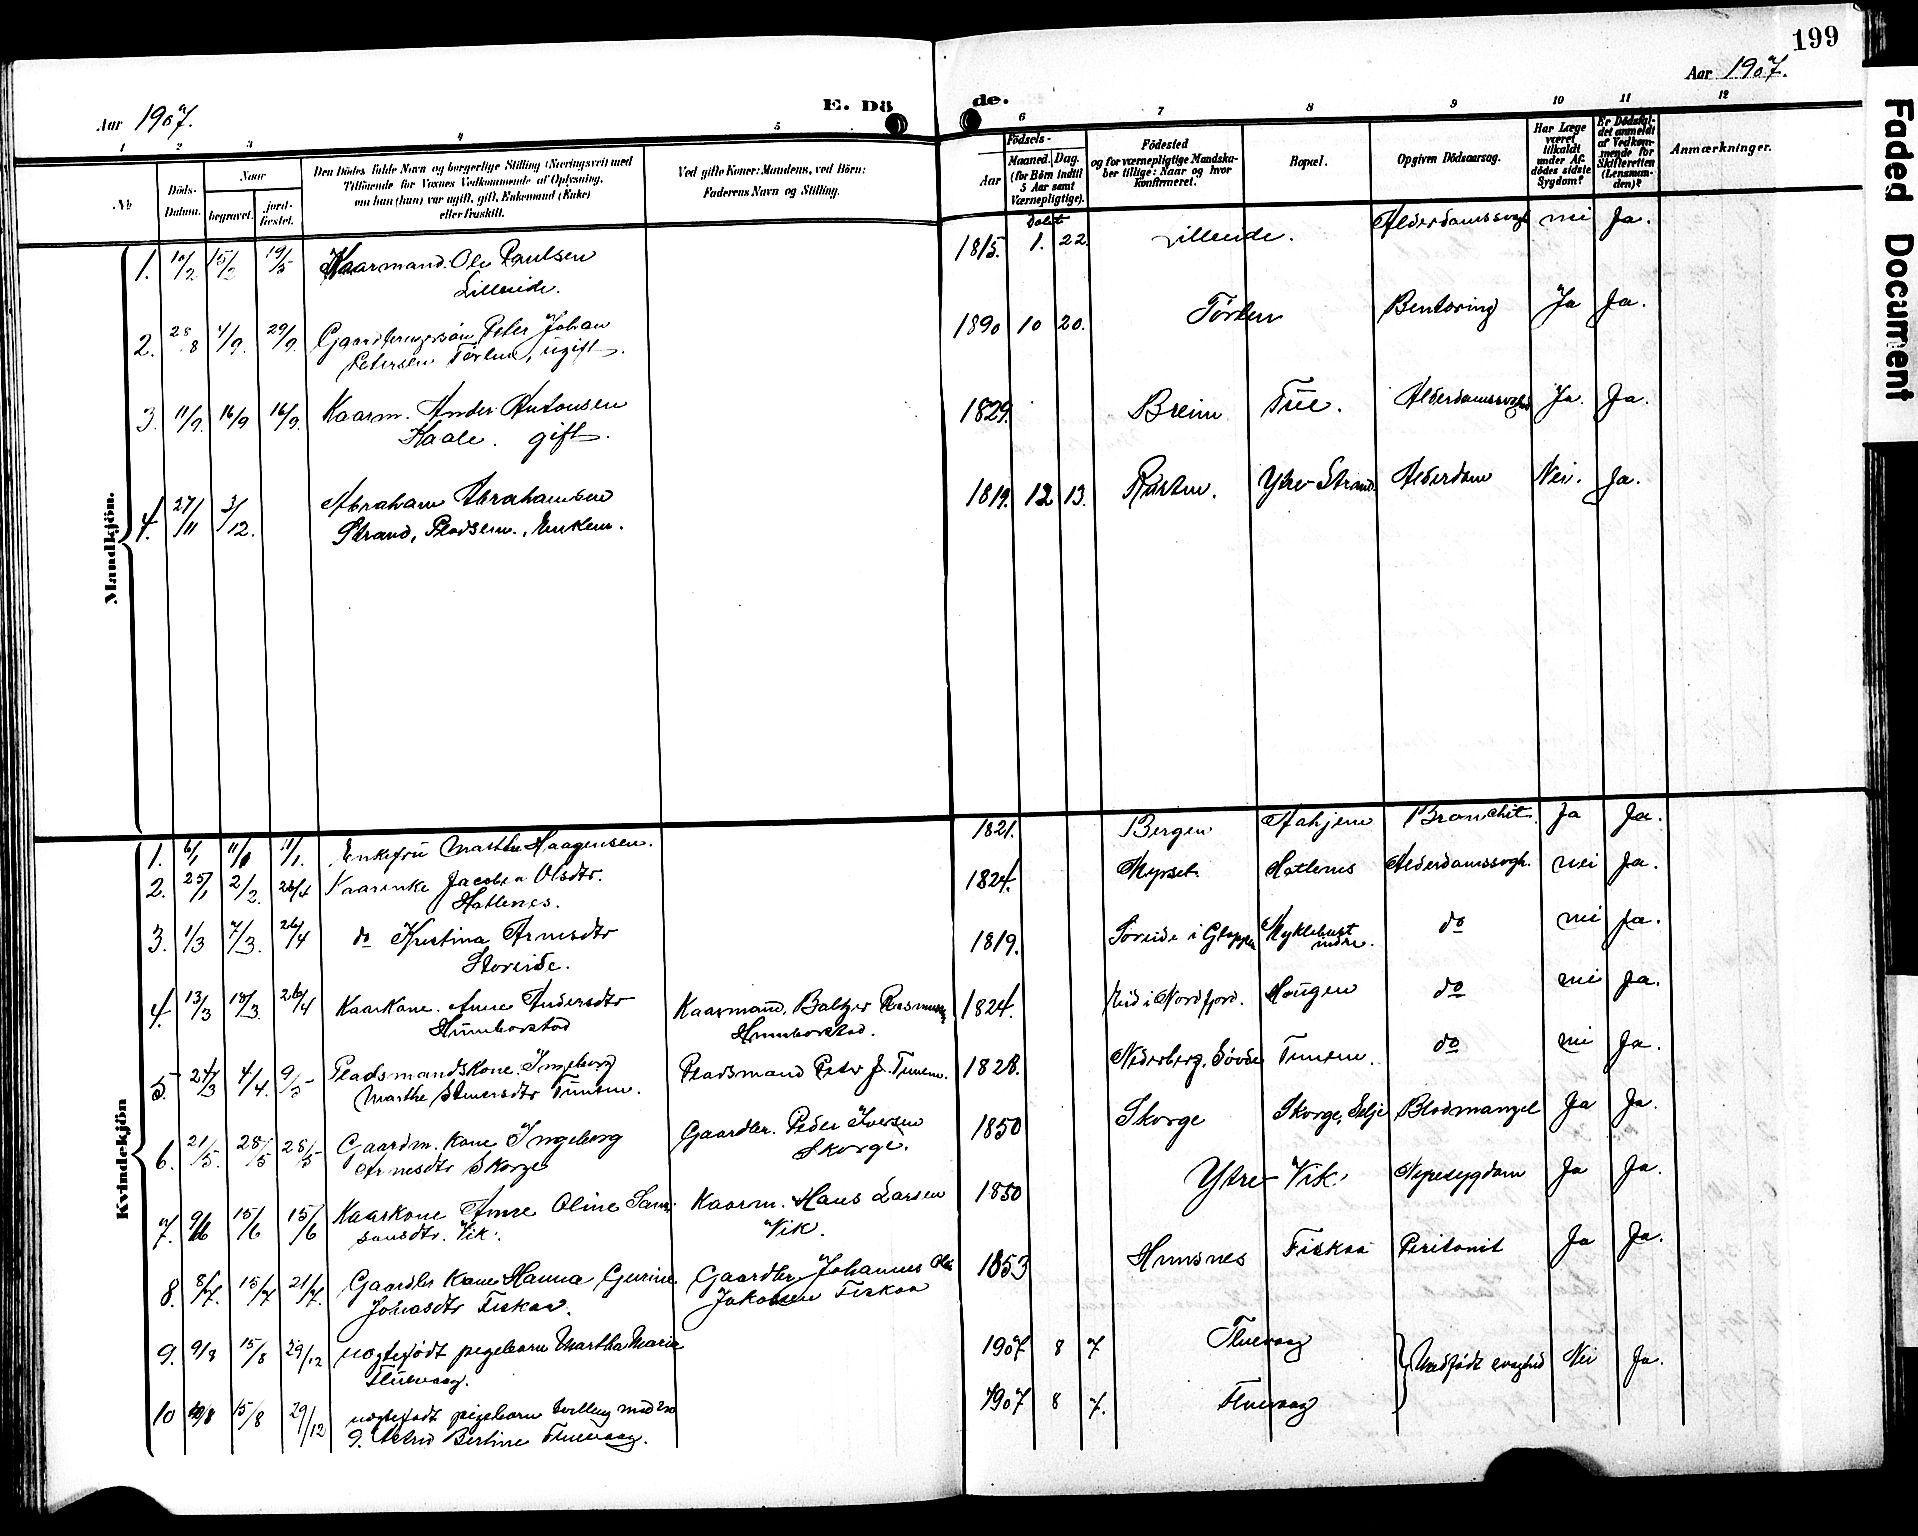 199
Aar 1907.
Aar 1907.
E. Dö de.
1 2 3 4 5 6 7 8 9 10 11 12
No
Döds-Datum.
Naar
begravet.
jord-fæstet.
Den Dödes fulde Navn og borgerlige Stilling (Næringsvei) med
Tilföiende for Voxnes Vedkommende af Oplysning,
om han (hun) var ugift, gift, Enkemand (Enke)
eller fraskilt.
Ved gifte Koner: Mandens, ved Börn:
Faderens Navn og Stilling.
Födsels-
Aar
Maaned. Dag.
(for Börn indtil
5 Aar samt
Værnepligtige).
Födested
og for værnepligtige Mandska-
ber tillige: Naar og hvor
konfirmeret.
Bopæl.
Opgiven Dödsaarsag.
Har Læge
været
tilkaldt
under Af-
dödes sidste
Sygdom?
Er Dödsfal-
det anmeldt
af Vedkom-
mende for
Skifteretten
(Lensman-
den)?
Anmærkninger.
Mandkjön.
1. 10/2 15/2 19/5 Kaarmand Ole Paulsen 1815. 1. 22. Lilleeide. Alderdomssvagh nei Ja.
Lilleeide.
2. 28/8 4/9. 29/9. Gaardbrugersön Peter Johan 1890 10 20. Törlen Bentæring Ja Ja.
Petersen Törlen, ugift.
3. 11/9. 16/9 16/9. Kaarm. Anders Antonsen 1829. Breim Tue. Alderdomssvaghed Ja. Ja.
Kaale. gift.
4. 27/11 3/12. Abraham Abrahamsen 1819. 12 13. Rusten. Ytre Strand. Alderdom Nei. Ja.
Strand, Pladsem., Enkem.
Kvindekjön
1. 6/1 11/1 11/1. Enkefru Marthe Haagensen. 1821. Bergen Aahjem Bronchit. Ja Ja.
2. 25/1 2/2. 26/4 Kaarenke Jacobea Olsdtr. 1824. Myrset Hatlenes Alderdomssvagh. nei Ja.
Hatlenes.
3. 1/3 7/3. 26/4 do Kristina Arnesdtr 1819. Foreide i Gloppen Myklebust indre. do nei Ja.
Storeide.
4. 13/3 18/3. 26/4 Kaarkone. Anne Andersdtr Kaarmand, Baltzer Rasmussen 1824. Eid i Nordfjord. Haugen do nei Ja.
Humborstad Humborstad.
5. 24/3 4/4. 9/5 Pladsmandskone. Ingeborg Pladsmand Peter J. Tunem. 1828. Nederberg, Søvde Tunem. do nei Ja.
Marthe Steuersdtr Tunem.
6. 21/5. 28/5 28/5 Gaardm. kone Ingeborg Gaardbr. Peder Iversen 1850 Skorge Skorge, Selje Blodmangel Ja Ja.
Arnesdtr Skorge Skorge.
7. 9/6 15/6 15/6 Kaarkone Anne Oline Sam- Kaarm. Hans Larsen 1850 Ytre Vik. Nyresygdom Ja Ja.
sonsdtr. Vik. Vik.
8. 8/7. 15/7 21/7. Gaardbr Kone Hanna Gurine Gaardbr Johannes Ole 1853 Hunsnes Fiskaa Peritonit Ja Ja.
Johnsdtr Fiskaa. Jakobsen Fiskaa
9. 9/8 15/8 29/12 uægtefødt pigebarn Martha Marie 1907 8 7 Fluevaag Medfødt svaghed Nei Ja.
Fluevaag.
10 10/8 15/8 29/12 uægtefødt pigebarn tvilling med no 1907 8 7. Fluevaag
9. Astrid Bertine Fluevaag.
Faded Document